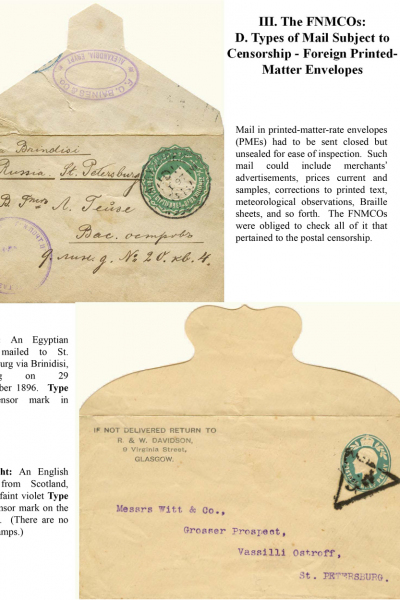 III. The FNMCOs:
D. Types of Mail Subject to
Censorship - Foreign Printed-
Matter Envelopes
Mail in printed-matter-rate envelopes
(PMEs) had to be sent closed but
unsealed for ease of inspection. Such
mail could include merchants'
advertisements, prices current and
samples, corrections to printed text,
meteorological observations, Braille
sheets, and so forth. The FNMCOs
were obliged to check all of it that
pertained to the postal censorship.
ALEXANDRIA, EGYPT
Brindisi
Russia. St. Petersburg
Л. Гейзе
Вас. островъ
9. № 20. кв. 4.
: An Egyptian
mailed to St.
urg via Brinidisi,
g on 29
ber 1896. Type
ensor mark in
ght: An English
from Scotland,
faint violet Type
nsor mark on the
. (There are no
amps.)
IF NOT DELIVERED RETURN TO
R. & W. DAVIDSON,
9 Virginia Street,
GLASGOW.
Messrs Witt & Co.,
Grosser Prospect,
Vassilli Ostroff,
St. PETERSBURG.